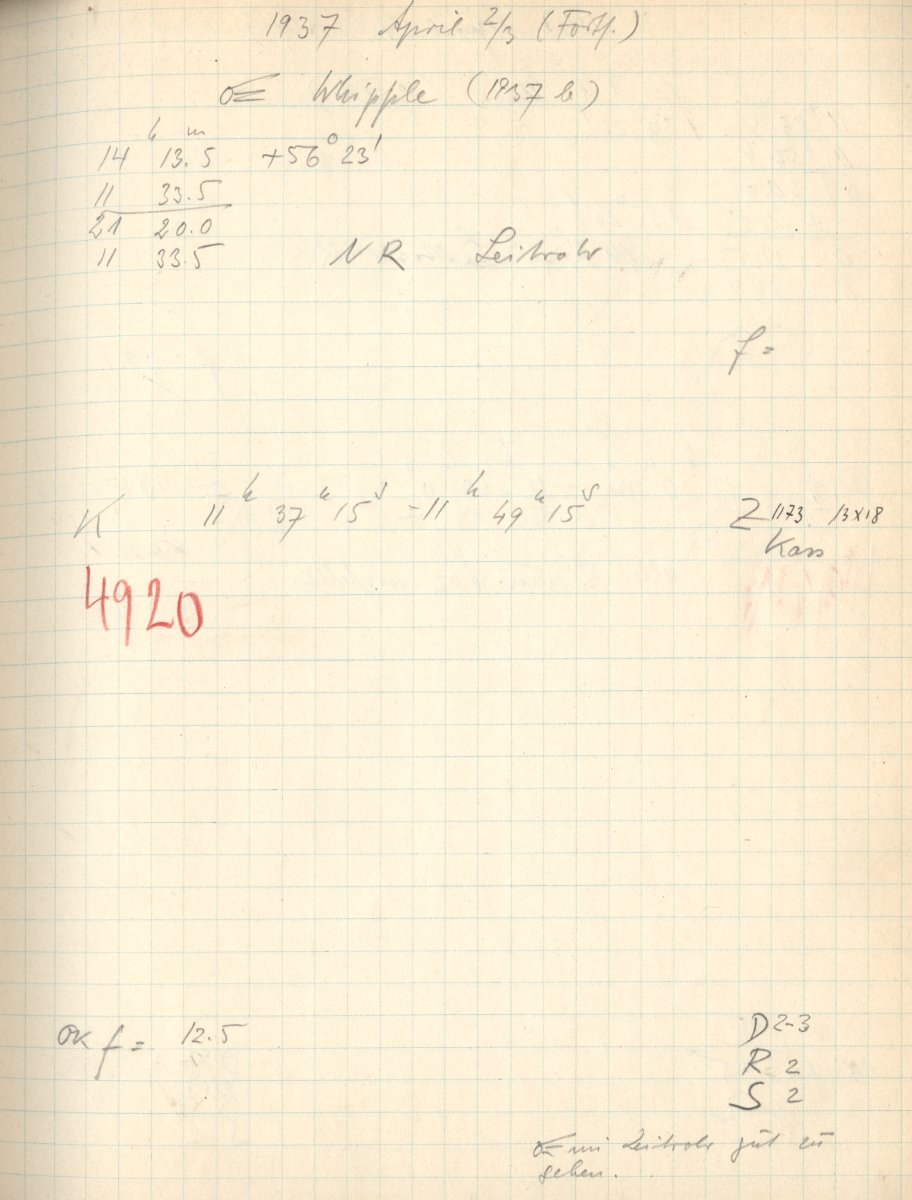 1937 April 2/3 (Fortf.)
☄ Whipple (1937 b)
h m
14 13.5 +56° 23'
11 33.5
21 20.0
11 33.5 NR Leitrohr
f =
K 11h 37m 15s - 11h 49m 15s Z 1173 13x18
Kass
4920
OK f = 12.5
D 2-3
R 2
S 2
☄ im Leitrohr gut zu
sehen.